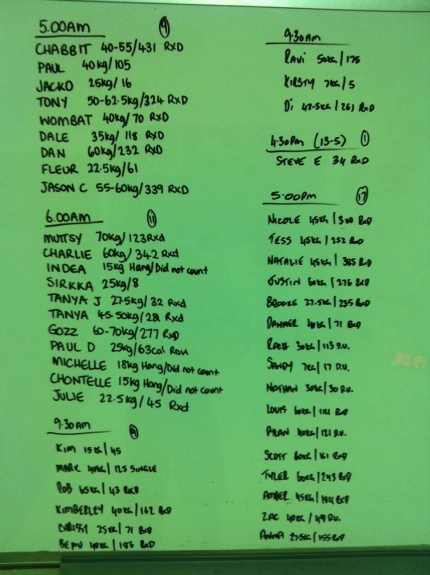 5.00AM 9
CHABBIT 40-55/431 RXD
PAUL 40kg/105
JACKO 25kg/16
TONY 50-62.5kg/324 RXD
WOMBAT 40kg/70 RXD
DALE 35kg/118 RXD
DAN 60kg/232 RXD
FLEUR 22.5kg/61
JASON C 55-60kg/339 RXD
6.00AM 11
MUTTSY 70kg/123Rxd
CHARLIE 60kg/342 Rxd
INDEA 15kg Hang/Did not count
SIRKKA 25kg/8
TANYA J 27.5kg/32 Rxd
TANYA 45-50kg/281 Rxd
GOZZ 60-70kg/277 RxD
PAUL D 25kg/63cal Row
MICHELLE 18kg Hang/Did not count
CHONTELLE 15kg Hang/Did not count
JULIE 22.5kg/45 Rxd
9.30AM
KIM 15kg/45
MARK 40kg/125 SINGLE
ROB 65kg/43 RXD
KIMBERLEY 40kg/162 RXD
CHRISSY 25kg/71 RXD
BEAU 40kg/186 RXD
9.30am
RAVI 50kg/175
KIRSTY 7kg/5
Di 42.5kg/261 RXD
4.30pm (13.5) 1
STEVE E 34 RXD
5.00pm 17
NICOLE 45kg/300 RXD
TESS 45kg/252 RXD
NATALIE 45kg/385 RXD
JUSTIN 60kg/276 RXD
BROOKE 27.5kg/235 RXD
DAHMER 40kg/71 RXD
30kg/113 D.U.
SANDY 7kg/17 D.U.
NATHAN 30kg/30 D.U.
LOUIS 60kg/ RXD
40kg/121 D.U.
SCOTT 60kg/161 RXD
TYLER 60kg/243 RXD
AMBER 45kg/184 RXD
ZAC 40kg/49 D.U.
ANNA 27.5kg/155 RXD